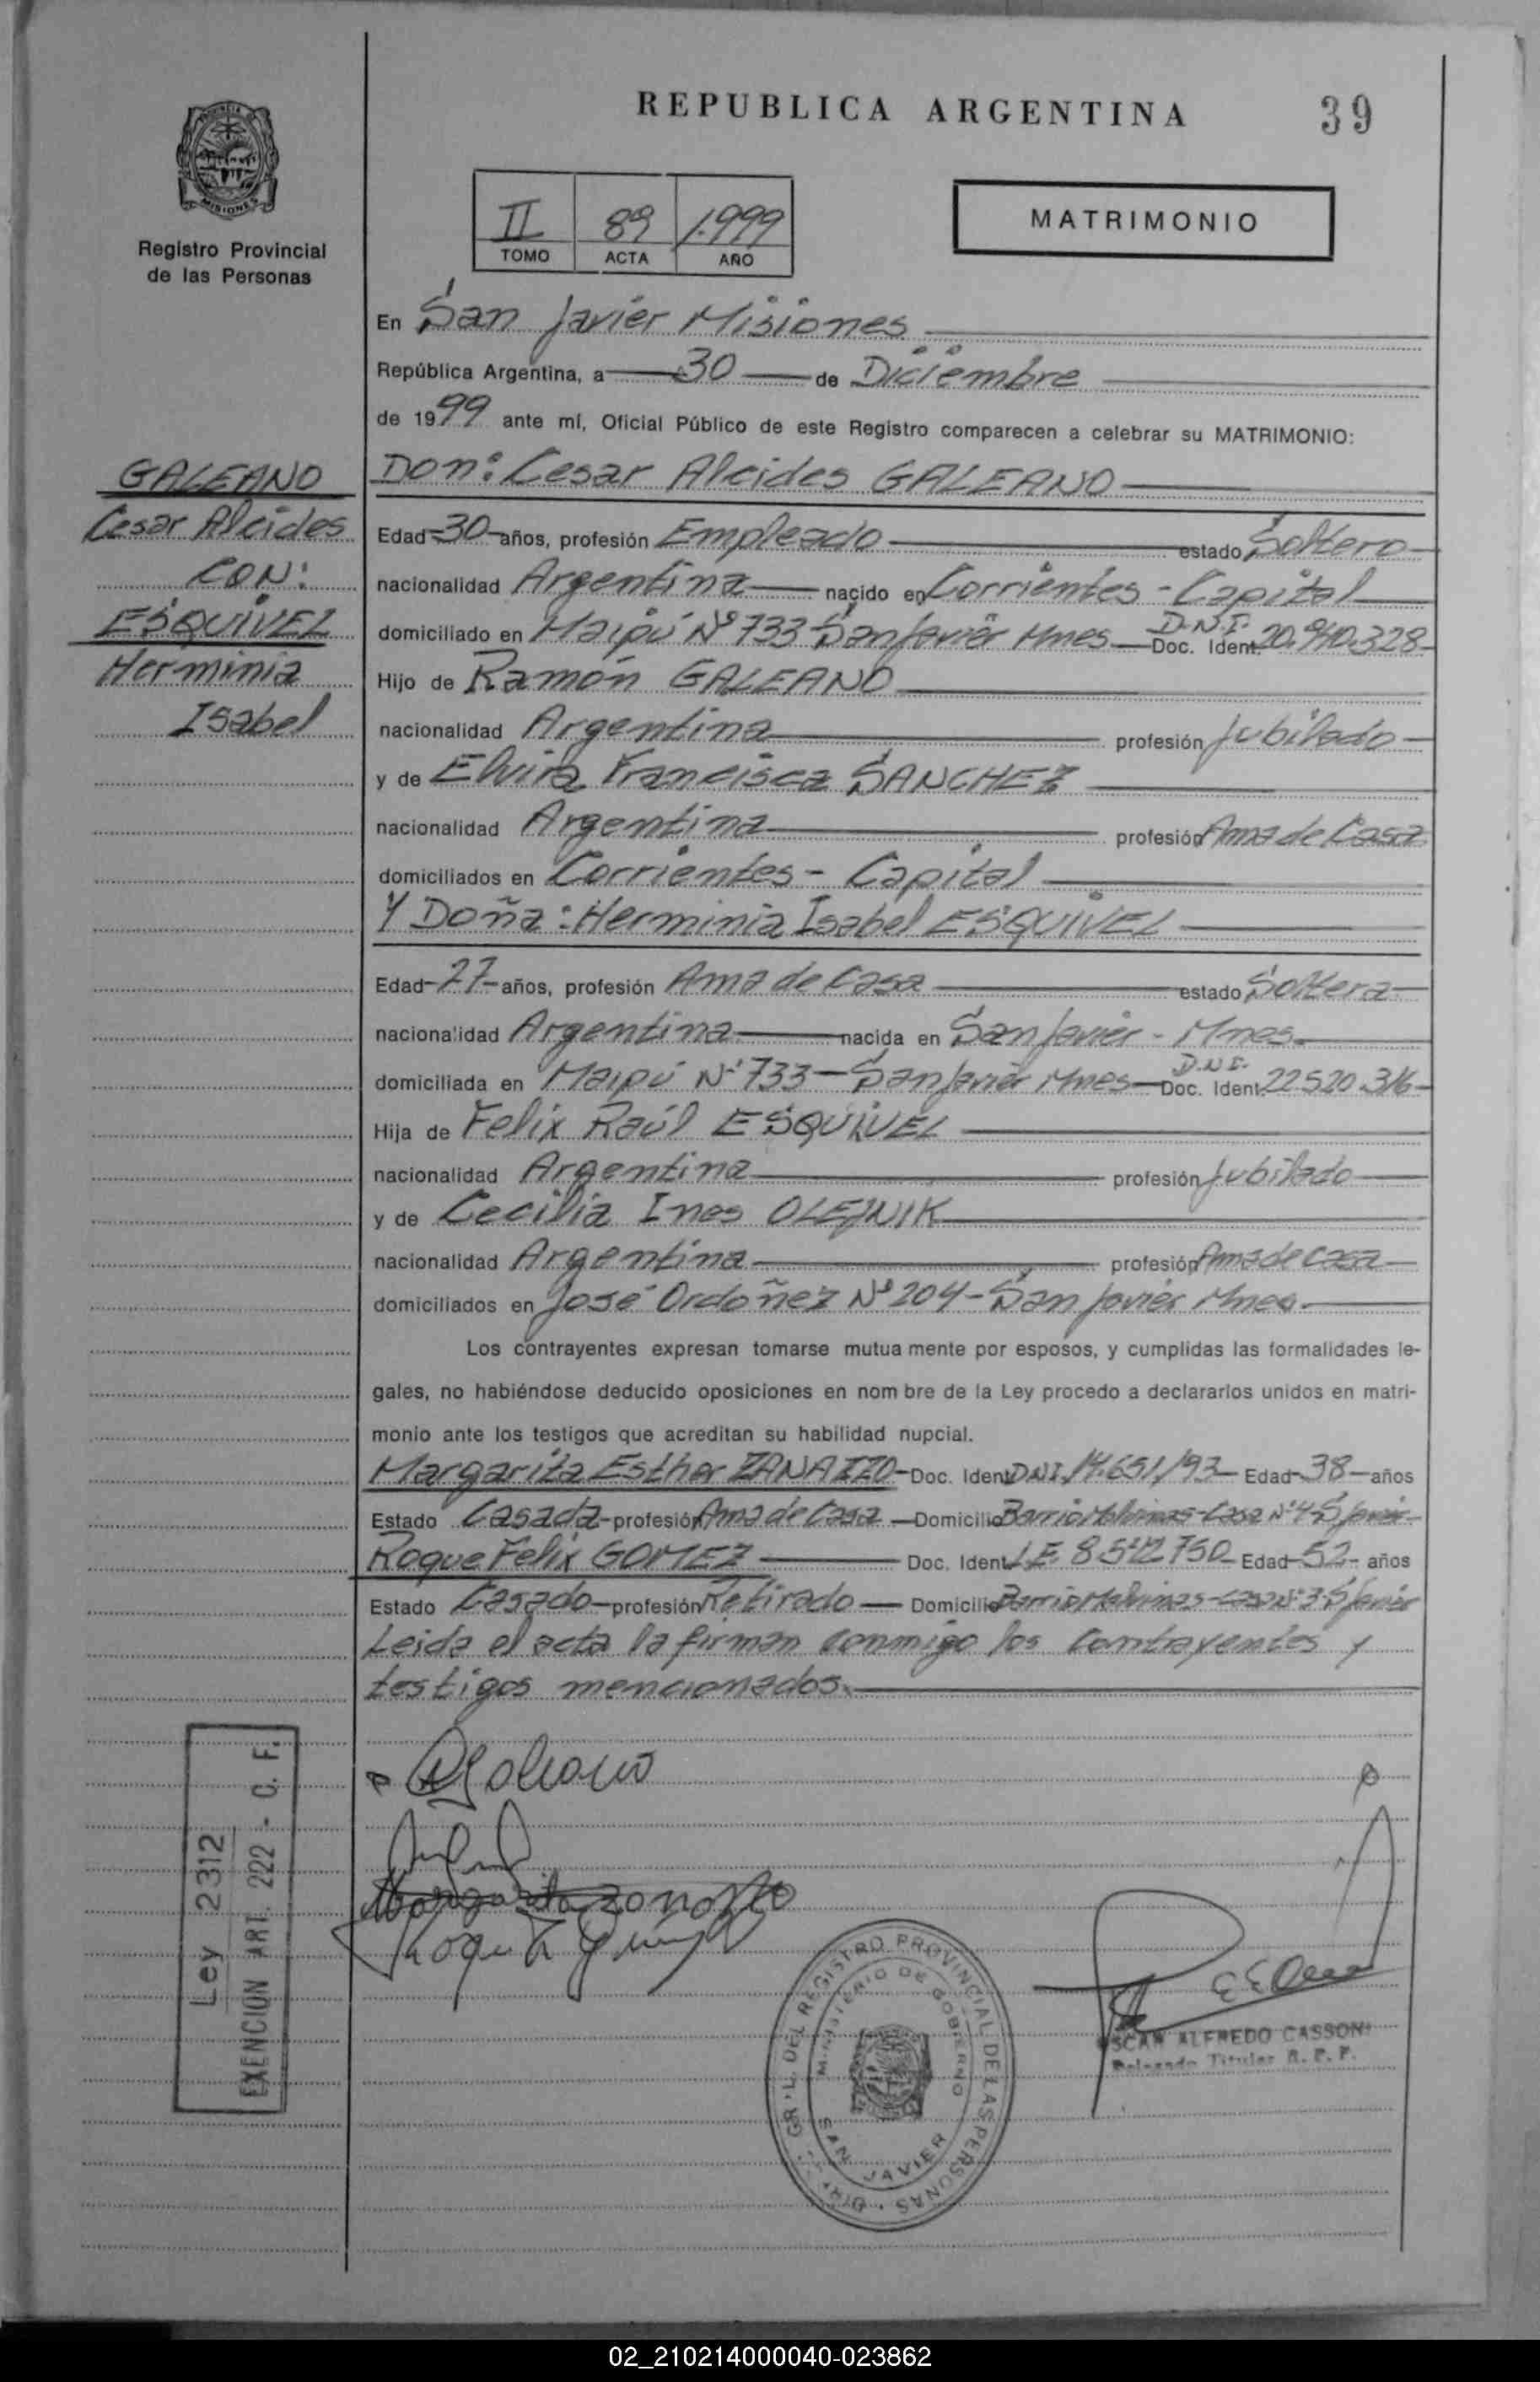 REPUBLICA ARGENTINA
39
PROVINCIA
MISIONES
Registro Provincial
de las Personas
II 89 1.999
TOMO ACTA AÑO
MATRIMONIO
En San Javier Misiones
República Argentina, a 30 de Diciembre
de 1999 ante mí, Oficial Público de este Registro comparecen a celebrar su MATRIMONIO:
GALEANO
Cesar Alcides
CON:
ESQUIVEL
Herminia
Isabel
Don: Cesar Alcides GALEANO
Edad 30 años, profesión Empleado estado Soltero
nacionalidad Argentina nacido en Corrientes - Capital
domiciliado en Maipú Nº 733 San Javier Mnes D.N.I. Doc. Ident. 20.940.328
Hijo de Ramón GALEANO
nacionalidad Argentina profesión Jubilado
y de Elvira Francisca SANCHEZ
nacionalidad Argentina profesión Ama de Casa
domiciliados en Corrientes - Capital
Y Doña: Herminia Isabel ESQUIVEL
Edad 27 años, profesión Ama de Casa estado Soltera
nacionalidad Argentina nacida en San Javier - Mnes.
domiciliada en Maipú Nº 733 - San Javier Mnes D.N.I. Doc. Ident. 22.520.316
Hija de Felix Raúl ESQUIVEL
nacionalidad Argentina profesión Jubilado
y de Cecilia Ines OLEJNIK
nacionalidad Argentina profesión Ama de Casa
domiciliados en José Ordoñez Nº 204 - San Javier Mnes.
Los contrayentes expresan tomarse mutua mente por esposos, y cumplidas las formalidades le-
gales, no habiéndose deducido oposiciones en nom bre de la Ley procedo a declararlos unidos en matri-
monio ante los testigos que acreditan su habilidad nupcial.
Margarita Esther Doc. Ident. DNI Edad 38 años
Estado Casada profesión Ama de Casa Domicilio Barrio Malvinas - Casa Nº 4 S Javier
Roque Felix GOMEZ Doc. Ident. L.E. 8.542.750 Edad 52 años
Estado Casado profesión Retirado Domicilio Barrio Malvinas - Casa Nº 3 S Javier
Leida el acta la firman conmigo los contrayentes y
testigos mencionados.
Ley 2312
EXENCION ART. 222 - C. F.
DIRECC. GRAL. DEL REGISTRO PROVINCIAL DE LAS PERSONAS
MINISTERIO DE GOBIERNO
SAN JAVIER
OSCAR ALFREDO CASSONI
Delegado Titular R. P. P.
02_210214000040-023862